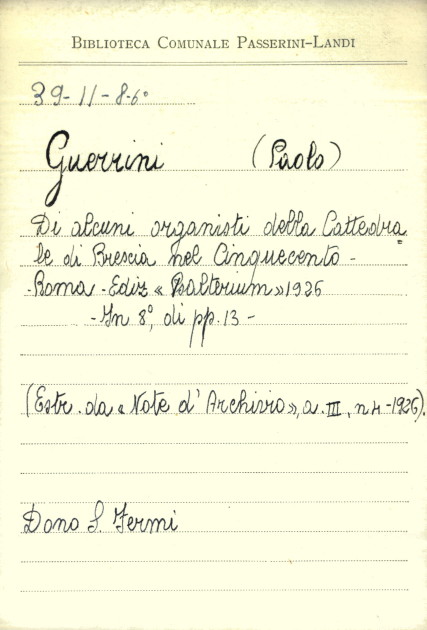 BIBLIOTECA COMUNALE PASSERINI-LANDI
39-11-8-6°
Guerrini (Paolo)
Di alcuni organisti della Cattedra=
le di Brescia nel Cinquecento -
- Roma - Ediz « Psalterium » 1926
- In 8°, di pp. 13 -
(Estr. da « Note d'Archivio », a. III, n 4 - 1926).
Dono S. Fermi